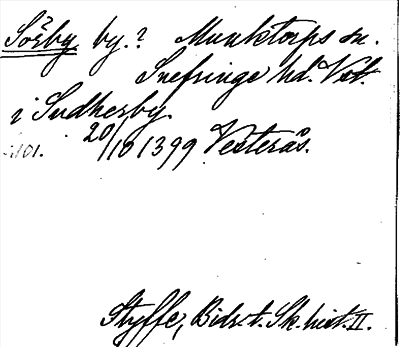 Sörby by.? Munktorps sn.
Snefringe hd. Vstl.
i Sudherby.
20/10 1399 Vesterås.
Styffe, Bidr. t. Sk. hist. II.